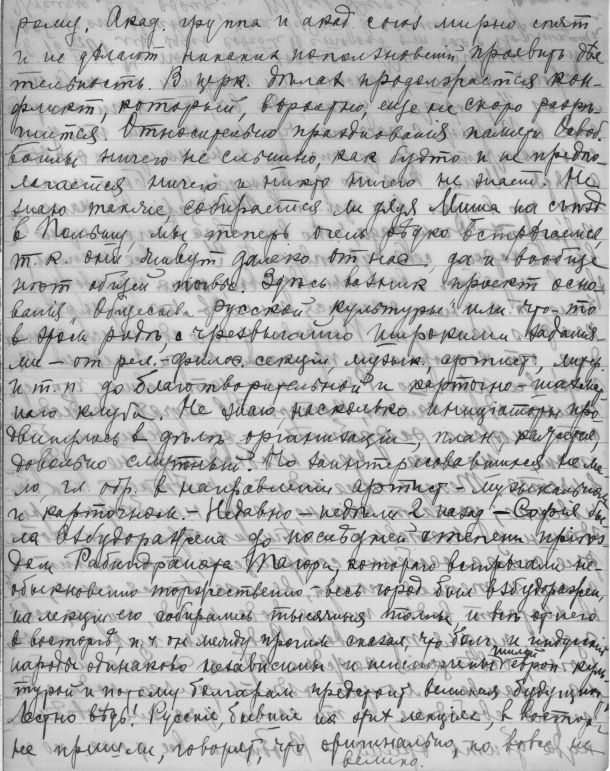 рому. Акад. группа и акад. союз мирно спят
и не дѣлают никаких поползновений проявить дѣя
тельность. В церк. дѣлах продолжается кон-
фликт, который, вѣроятно, еще не скоро разрѣ
шится. Относительно празднования памяти Освоб.
войны ничего не слышно, как будто и не предпо-
лагается ничего и никто ничего не знает. Не
знаю также, собирается ли дядя Миша на съѣзд
в Польшу, мы теперь очень рѣдко встрѣчаемся,
т. к. они живут далеко от нас, да и вообще
нет общей почвы. Здѣсь возник проект осно
ванія „Общества Русской культуры" или что-то
в этом родѣ, с чрезвычайно широкими задания-
ми – от рел.-филос. секции, музык., артист., литер.
и т. п. до благотворительной и карточно-шахмат
наго клуба. Не знаю насколько инициаторы про-
двинулись в дѣлѣ организации, план, кажется,
довольно смутный. Но заинтересовавшихся нема-
ло, гл. обр. в направлении артист.-музыкальном
и карточном. – Недавно – недѣли 2 назад – София бы-
ла взбудоражена до послѣдней степени приѣз
дом Рабиндраната Тагора, которого встрѣчали не-
обыкновенно торжественно – весь город был взбудоражен,
на лекции его собирались тысячныя толпы, и всѣ от него
в восторгѣ, п. ч. он между прочим сказал, что болг. и индусский
народы одинаково независимы и неиспорчены гнилой европ. куль-
турой и потому болгарам предстоит великая будущность.
Лестно вѣдь! Русские, бывшие на этих лекциях, в восторг
не пришли, говорят, что оригинально, но вовсе не
велико.